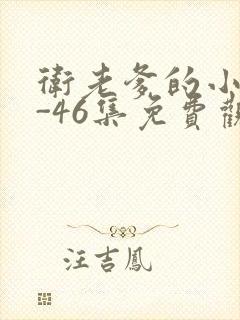 衛老爹的小
-46集免費觀
汪吉鳳